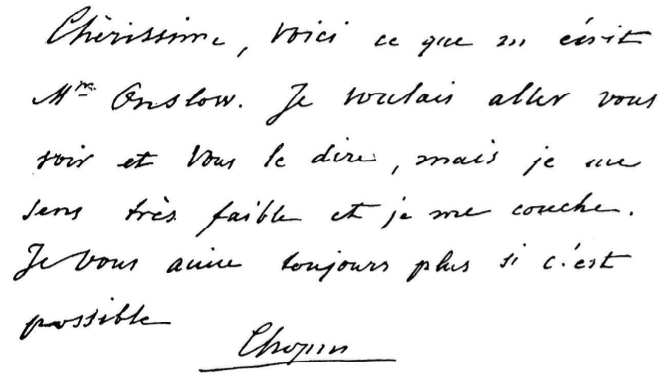 Chèrissime, voici ce que m'écrit
Mme. Onslow. Je voulais aller vous
voir et vous le dire, mais je me
sens très faible et je me couche.
Je vous aime toujours plus si c'est
possible
Chopin